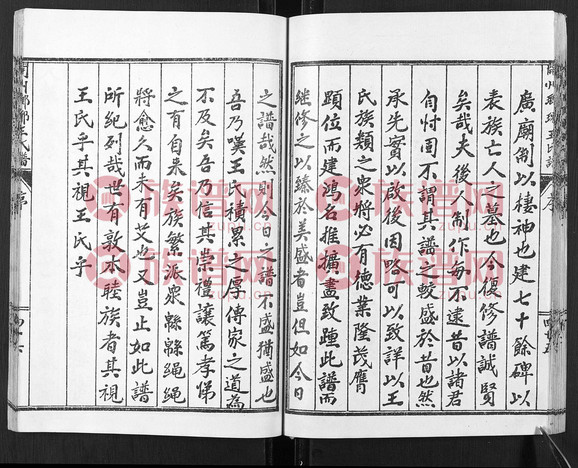 廣廟制以棲神也建七十餘碑以
表族亡人之墓也今復修譜誠賢
矣哉夫後人制作每不逮昔以諸君
自忖固不謂其譜之較盛於昔也然
承先實以啟後因略可以致詳以王
民族類之衆將必有德業隆茂膺
顕位而建鴻名推擴盡致踵此譜而
継修之以臻於美盛者豈但如今日
之譜哉然則今日之譜不盛猶盛也
吾乃嘆王氏積累之厚傳家之道為
不及矣吾乃信其崇禮讓篤孝悌
之有自来矣族繁派衆緜緜繩繩
將愈久而未有艾也又豈止如此譜
所紀列哉世有敦本睦族者其視
王氏乎其視王氏乎
序
族譜网
zupu.cn